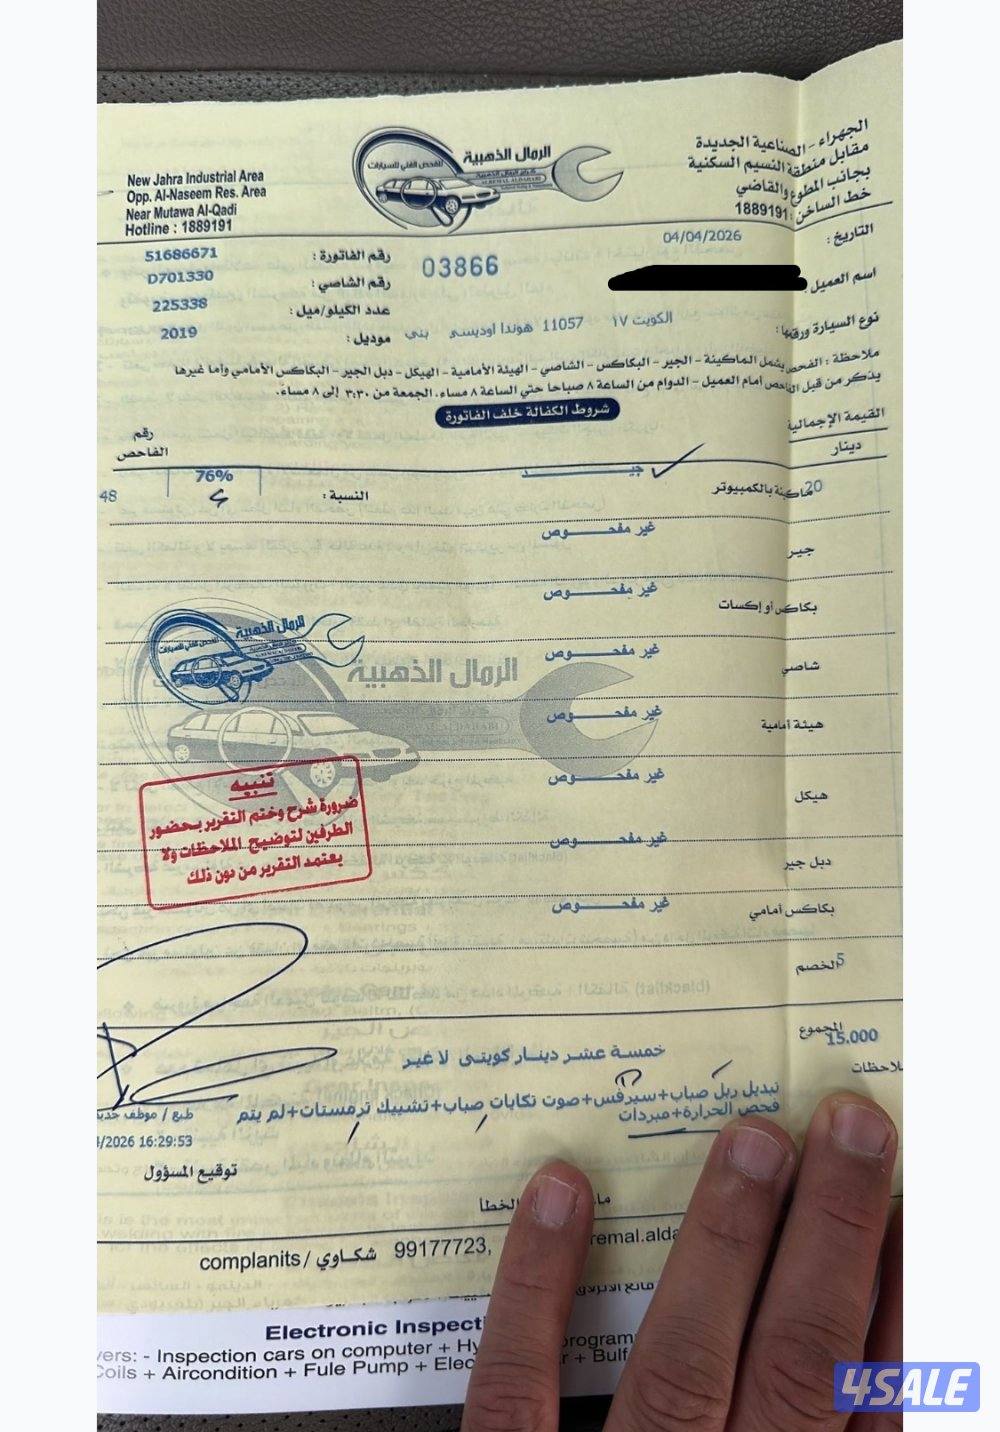 الجهراء - الصناعية الجديدة
مقابل منطقة النسيم السكنية
بجانب المطوع والقاضي
خط الساخن : 1889191
الرمال الذهبية
للفحص الفني للسيارات
New Jahra Industrial Area
Opp. Al-Naseem Res. Area
Near Mutawa Al-Qadi
Hotline : 1889191
التاريخ : 04/04/2026
اسم العميل :
نوع السيارة ورقمها : الكويت ١٧ 11057 هوندا اوديسى بني
03866
رقم الفاتورة : 51686671
رقم الشاصي : D701330
عدد الكيلو/ميل : 225338
موديل : 2019
ملاحظة : الفحص يشمل الماكينة - الجير - البكاكس - الشاصي - الهيئة الأمامية - الهيكل - دبل الجير - البكاكس الأمامي وأما غيرها
يذكر من قبل الفاحص أمام العميل - الدوام من الساعة ٨ صباحا حتي الساعة ٨ مساء، الجمعة من ٣:٣٠ إلى ٨ مساء.
شروط الكفالة خلف الفاتورة
القيمة الإجمالية
دينار
رقم
الفاحص
20 ماكينة بالكمبيوتر جيد النسبة : 76% 48
جير غير مفحوص
بكاكس أو إكسات غير مفحوص
شاصي غير مفحوص
هيئة أمامية غير مفحوص
هيكل غير مفحوص
دبل جير غير مفحوص
بكاكس أمامي غير مفحوص
الرمال الذهبية
الرمال الذهبية
تنبيه
ضرورة شرح وختم التقرير بحضور
الطرفين لتوضيح الملاحظات ولا
يعتمد التقرير من دون ذلك
الخصم 5
المجموع 15.000
خمسة عشر دينار كويتى لا غير
ملاحظات
تبديل ربل صباب+سيرفس+صوت تكايات صباب+تشييك ترمستات+لم يتم
فحص الحرارة+مبردات
طبع / موظف
/2026 16:29:53
توقيع المسؤول
الخطأ
complanits / شكاوي 99177723,
Electronic Inspecti
vers: - Inspection cars on computer + Hy programm
Coils + Aircondition + Fule Pump + Elec r + Bulf
4SALE